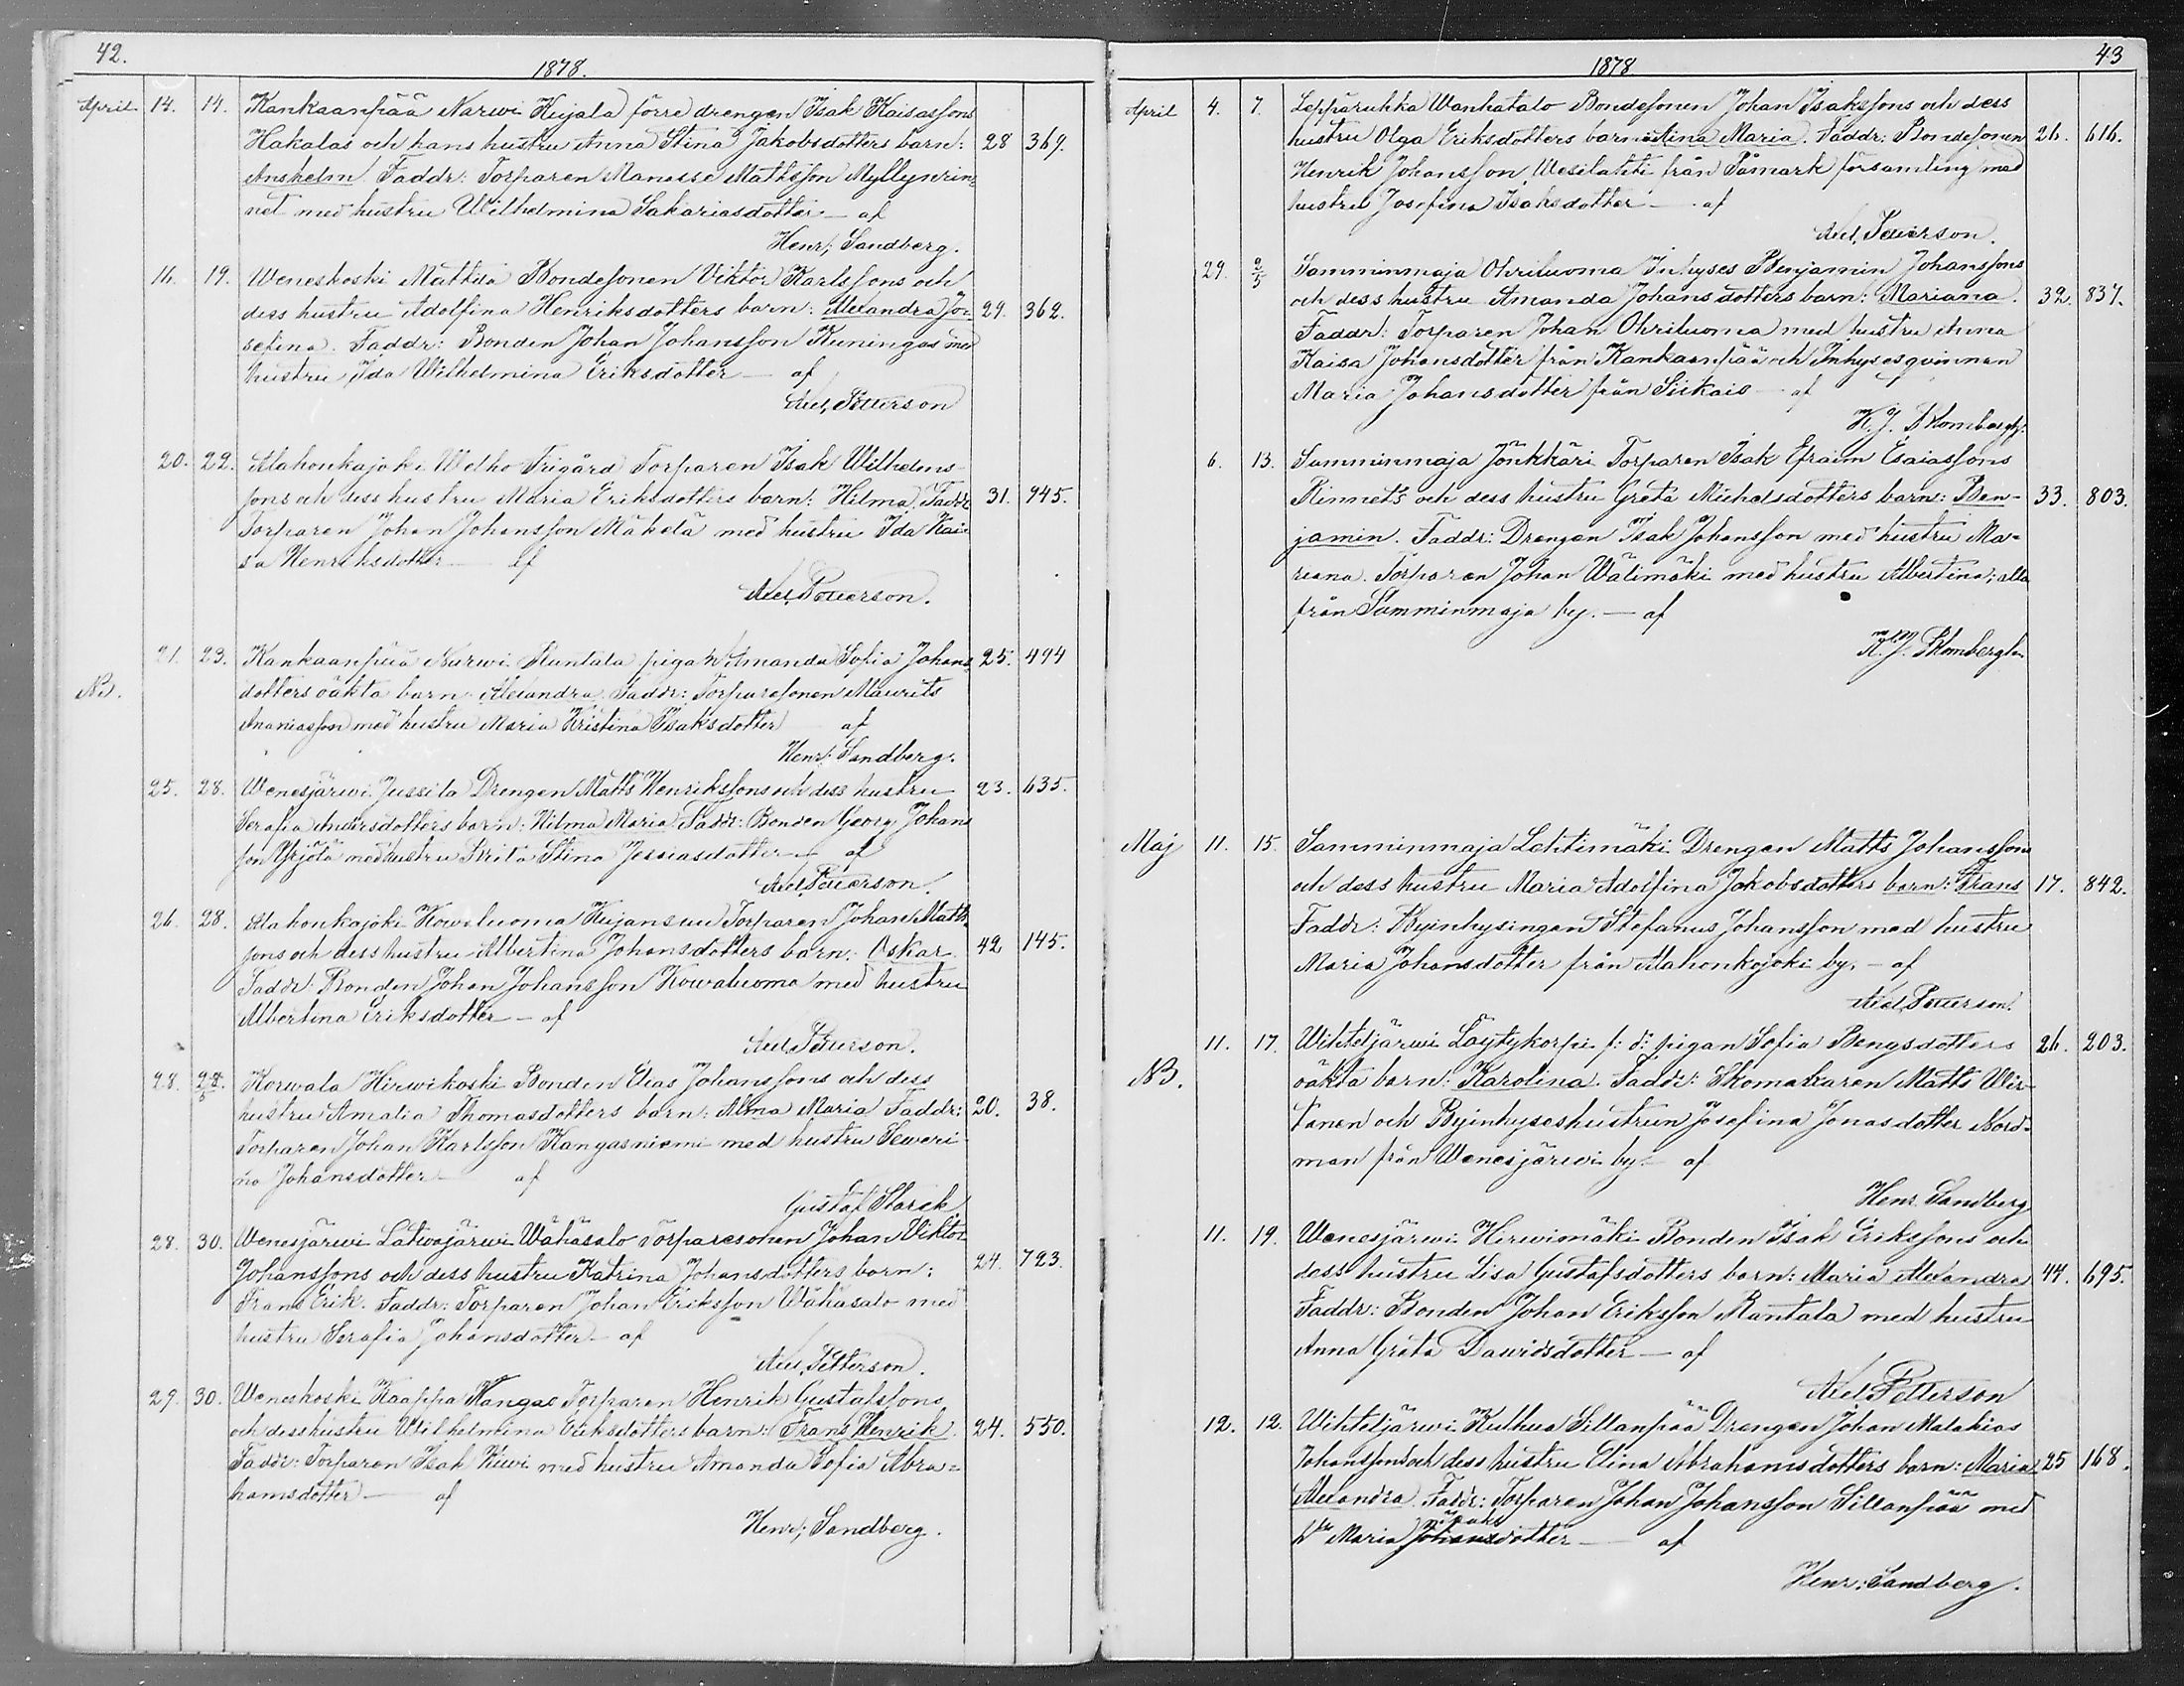 42.
1878.
April 14. 14. Kankaanpää Narwi Kujala förre drengen Isak Kaisassons
Hakalas och hans hustru Anna Stina Jakobsdotters barn: 28 369.
Anshelm. Faddr: Torparen Manasse Mathsson Myllynrin-
net med hustru Wilhelmina Sakariasdotter — af
Henr; Sandberg.
16. 19. Weneskoski Mattila Bondesonen Viktor Karlssons och
dess hustru Adolfina Henriksdotters barn: Alexandra Jo- 29. 362.
sefina. Faddr: Bonden Johan Johansson Kuningas med
hustru Ida Wilhelmina Eriksdotter — af
Axel Petterson
20. 22. Alahonkajoki Welho Frigård Torparen Isak Wilhelms-
sons och dess hustru Maria Eriksdotters barn: Hilma. Faddr: 31. 945.
Torparen Johan Johansson Mäkelä med hustru Ida Kai-
sa Henriksdotter — af
Axel Petterson.
21. 23. Kankaanpää Narwi Runtala pigan Amanda Sofia Johans- 25. 494
NB. dotters oäkta barn: Alexandra. Faddr: Torparesonen Maurits
Ananiasson med hustru Maria Kristina Isaksdotter af
Henr; Sandberg.
25. 28. Wenesjärwi Jussila Drengen Matts Henrikssons och dess hustru 23. 635.
Serafia Andersdotters barn: Hilma Maria. Faddr: Bonden Georg Johans
son Yrjölä med hustru Brita Stina Jessiasdotter — af
Axel Petterson.
26. 28. Alahonkajoki Kowaluoma Kujansuu Torparen Johan Matts-
sons och dess hustru Albertina Johansdotters barn: Oskar. 42 145.
Faddr: Bonden Johan Johansson Kowaluoma med hustru
Albertina Eriksdotter — af
Axel Petterson.
28. 28/5. Korwala Hirwikoski Bonden Elias Johanssons och dess
hustru Amalia Thomasdotters barn: Alma Maria Faddr: 20. 38.
Torparen Johan Karlsson Kangasniemi med hustru Seweri-
na Johansdotter — af
Gustaf Starck.
28. 30. Wenesjärwi Latwajärwi Wähäsalo Torparesonen Johan Viktor
Johanssons och dess hustru Katrina Johansdotters barn: 24. 793.
Frans Erik. Faddr: Torparen Johan Eriksson Wähäsalo med
hustru Serafia Johansdotter — af
Axel Petterson.
29. 30. Weneskoski Kaappa Kangas Torparen Henrik Gustafssons
och dess hustru Wilhelmina Eriksdotters barn: Frans Henrik. 24. 550.
Faddr: Torparen Isak Kiwi med hustru Amanda Sofia Abra-
hamsdotter — af
Henr; Sandberg.
43
1878
April 4. 7. Leppäruhka Wanhatalo Bondesonen Johan Isakssons och dess
hustru Olga Eriksdotters barn: Stina Maria. Faddr: Bondesonen 26. 616.
Henrik Johansson Wesilahti från Påmark församling med
hustru Josefina Isaksdotter — af
Axel Petterson.
29. 9/5 Samminmaja Ohriluoma Inhyses Benjamin Johanssons
och dess hustru Amanda Johansdotters barn: Mariana. 32. 837.
Faddr: Torparen Johan Ohriluoma med hustru Anna
Kaisa Johansdotter från Kankaanpää och Inhysesqvinnan
Maria Johansdotter från Siikais — af
K. J. Blombergh.
6. 13. Samminmaja Jönkkäri Torparen Isak Efraim Esaiassons
Rinnets och dess hustru Greta Michelsdotters barn: Ben- 33. 803.
jamin. Faddr: Drengen Isak Johansson med hustru Ma-
riana. Torparen Johan Wälimäki med hustru Albertina; alla
från Samminmaja by. — af
K. J. Blombergh.
Maj 11. 15. Samminmaja Lehtimäki Drengen Matts Johanssons
och dess hustru Maria Adolfina Jakobsdotters barn: Frans 17. 842.
Faddr: Byinhysingen Stefanus Johansson med hustru
Maria Johansdotter från Alahonkajoki by. — af
Axel Petterson.
11. 17. Wihteljärwi Löytykorpi f: d: pigan Sofia Bengsdotters 26. 203.
NB. oäkta barn: Karolina. Faddr: Skomakaren Matts Wir-
tanen och Byinhyseshustrun Josefina Jonasdotter Nord-
man från Wenesjärwi by. — af
Henr. Sandberg
11. 19. Wenesjärwi Hirwimäki Bonden Isak Erikssons och
dess hustru Lisa Gustafsdotters barn: Maria Alexandra 44. 695.
Faddr: Bonden Johan Eriksson Rantala med hustru
Anna Greta Dawidsdotter — af
Axel Petterson
12. 12. Wihteljärwi Kulhua Sillanpää Drengen Johan Malakias
Johanssons och dess hustru Elina Abrahamsdotters barn: Maria 25 168.
Alexandra. Faddr: Torparen Johan Johansson Sillanpää med
h:u Maria Johansdotter — af
Henr: Sandberg.